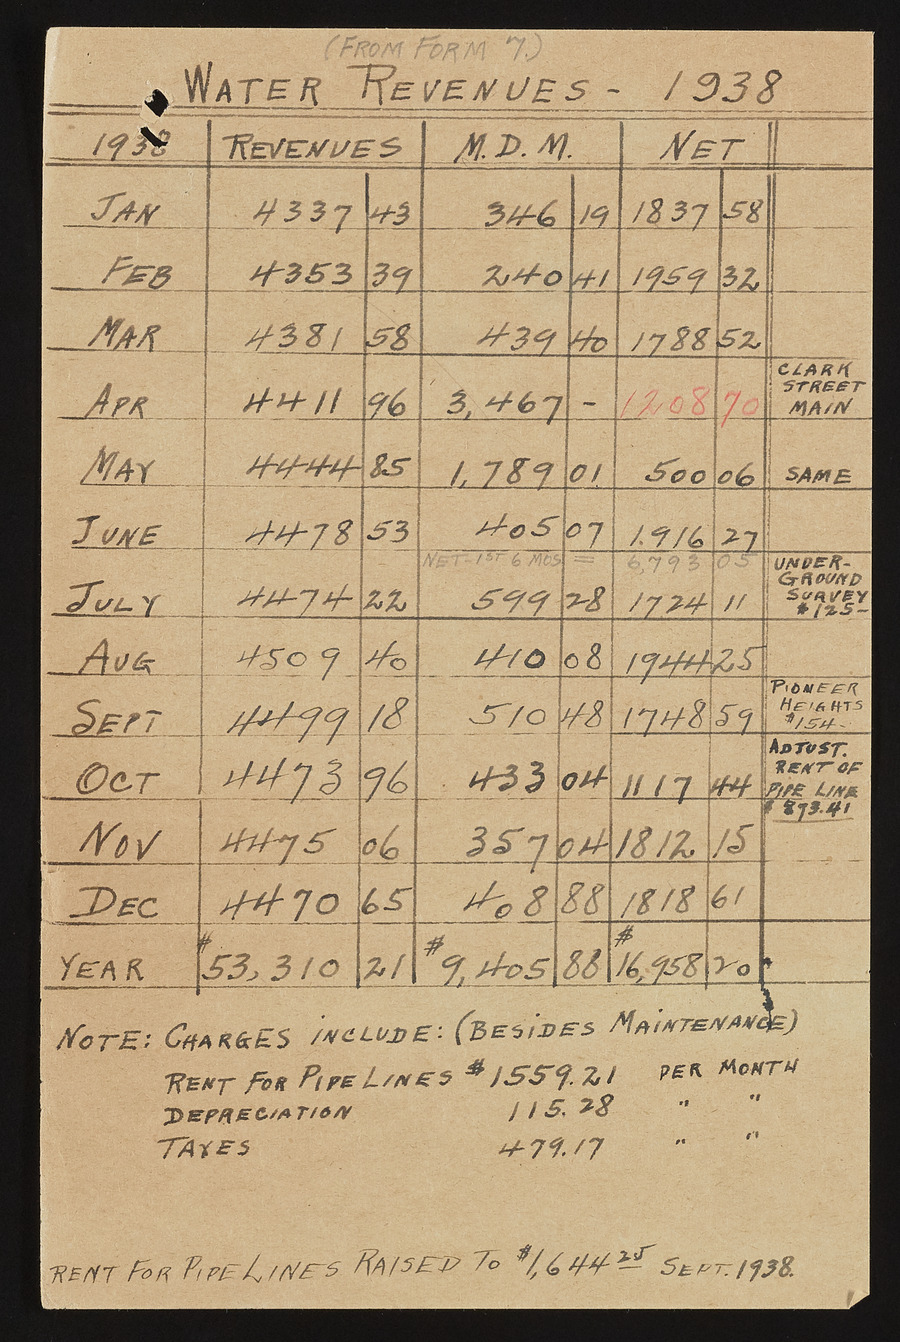 (FROM FORM 7.)
WATER REVENUES - 1938
1938 REVENUES M.D.M. NET
JAN 4337 43 346 19 1837 58
FEB 4353 39 240 41 1959 32
MAR 4381 58 439 40 1788 52
CLARK
STREET
APR 4411 96 3,467 - 1208 70 MAIN
MAY 4444 85 1,789 01 500 06 SAME
JUNE 4478 53 405 07 1.916 27
NET-1ST 6 MOS = 6,793 05
UNDER-
GROUND
SURVEY
JULY 4474 22 599 28 1724 11 $125-
AUG 4509 40 410 08 1944 25
PIONEER
HEIGHTS
SEPT 4499 18 510 48 1748 59 $154-
ADJUST.
RENT OF
OCT 4473 96 433 04 1117 44 PIPE LINE
$873.41
NOV 4475 06 357 04 1812 15
DEC 4470 65 408 88 1818 61
YEAR $53,310 21 $9,405 88 $16,958 20
NOTE: CHARGES INCLUDE: (BESIDES MAINTENANCE)
RENT FOR PIPE LINES $1559.21 PER MONTH
DEPRECIATION 115.28 " "
TAXES 479.17 " "
RENT FOR PIPE LINES RAISED TO $1,644 25 SEPT. 1938.